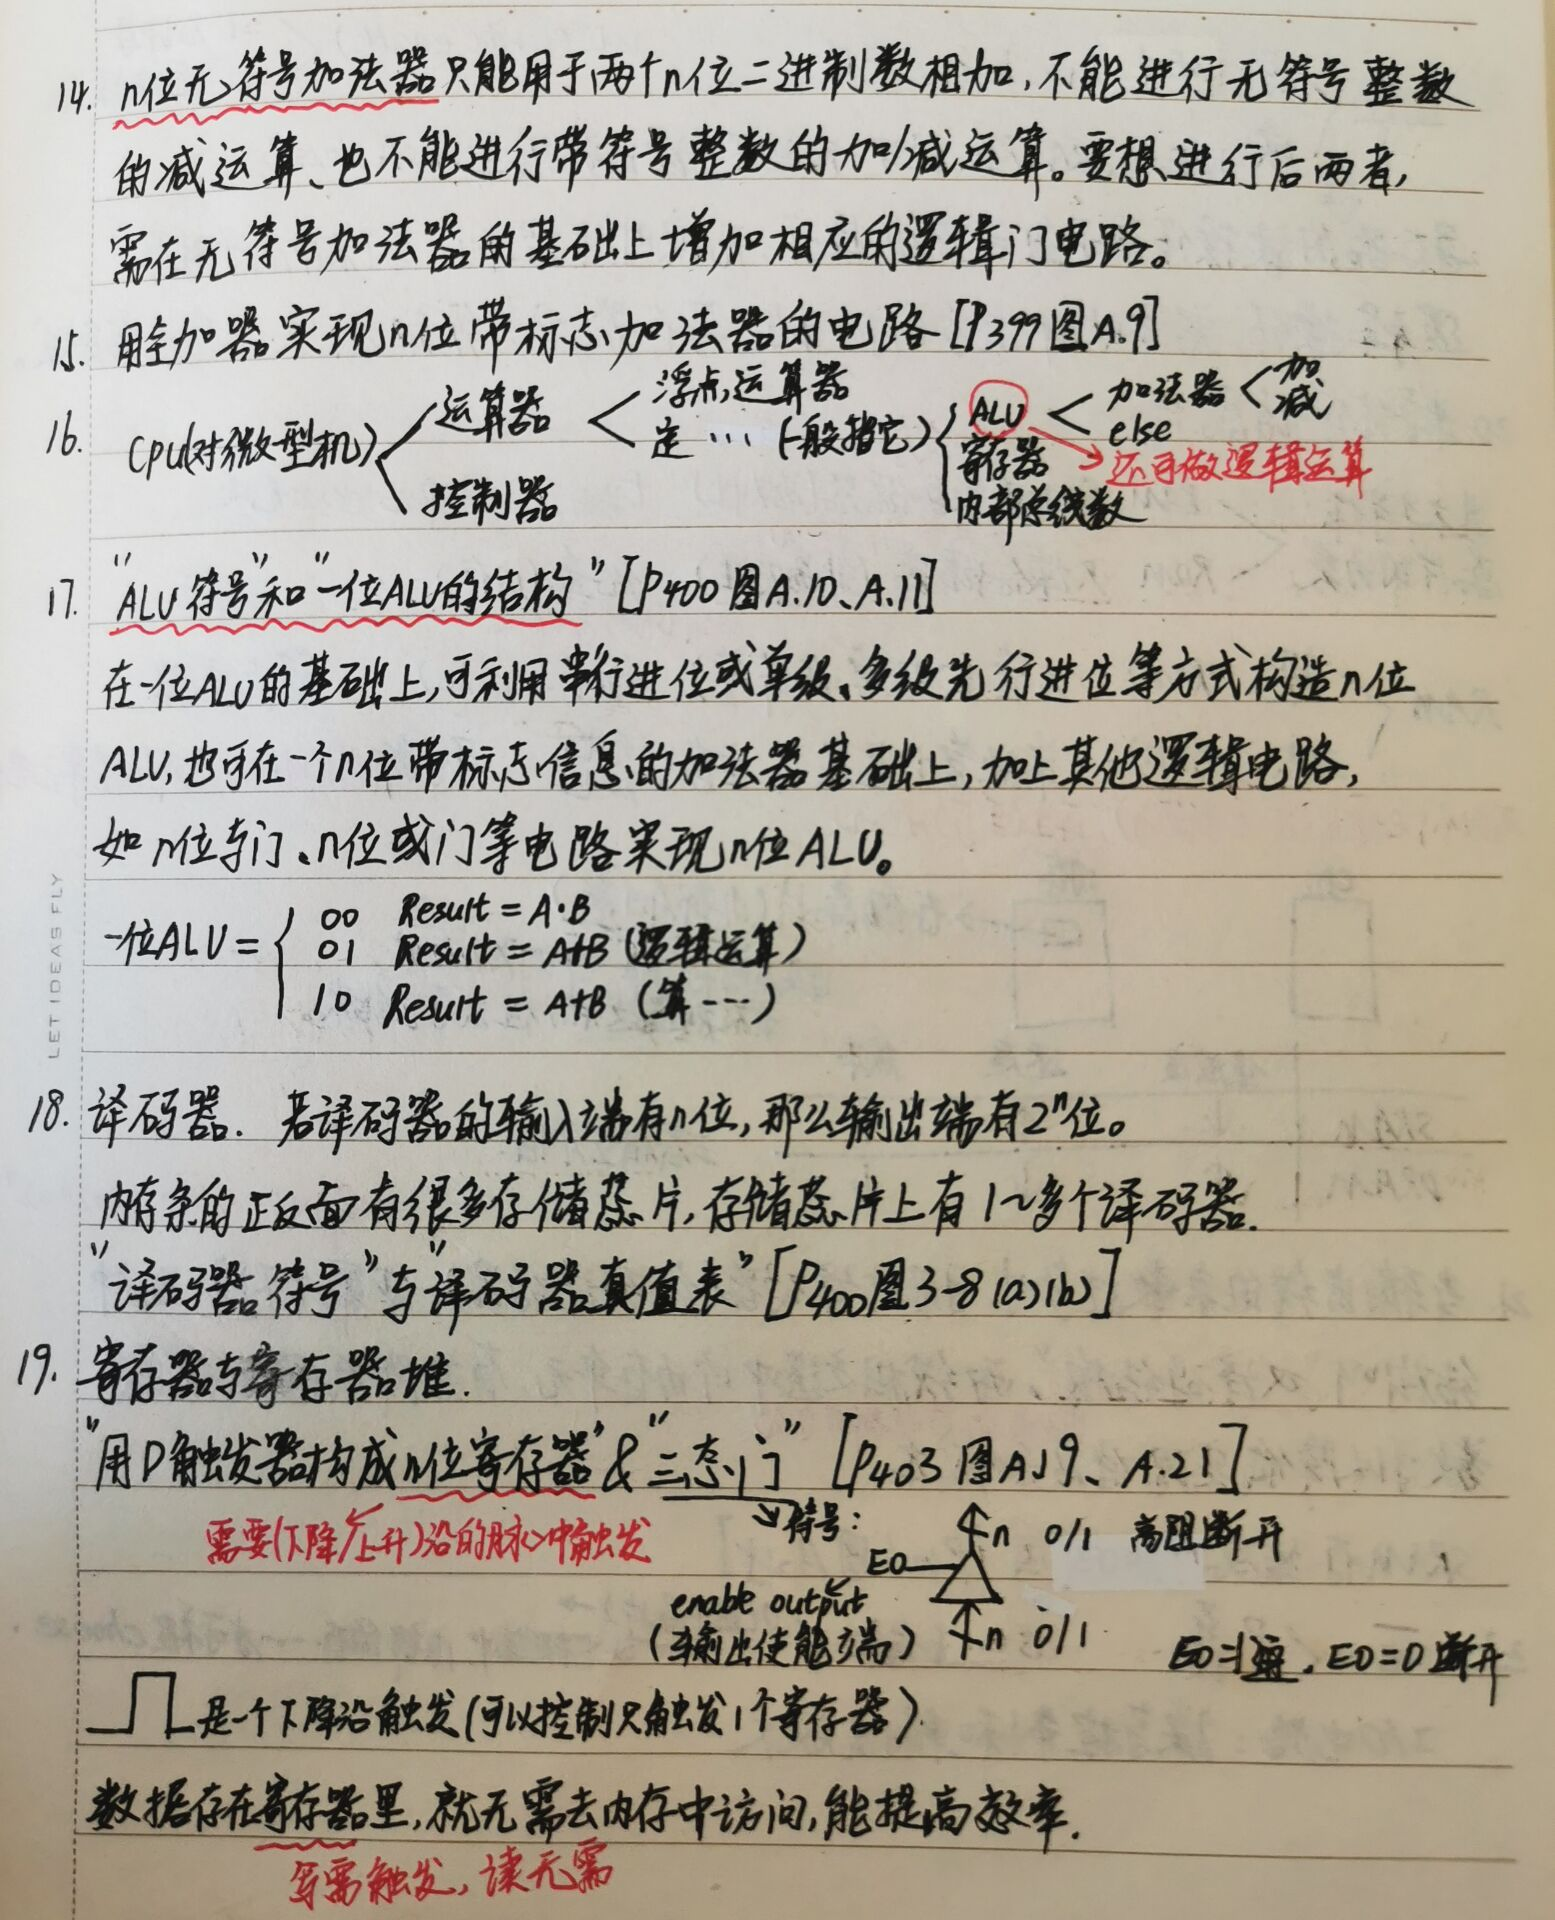 14. n位无符号加法器只能用于两个n位二进制数相加,不能进行无符号整数
的减运算、也不能进行带符号整数的加/减运算。要想进行后两者,
需在无符号加法器的基础上增加相应的逻辑门电路。
15. 用全加器实现n位带标志加法器的电路[P399图A.9]
16. CPU(对微型机)
运算器
控制器
浮点运算器
定…(一般指它)
ALU
寄存器
内部总线数
加法器
else
加
减
还可做逻辑运算
17. "ALU符号"和"一位ALU的结构"[P400图A.10、A.11]
在一位ALU的基础上,可利用串行进位或单级、多级先行进位等方式构造n位
ALU,也可在一个n位带标志信息的加法器基础上,加上其他逻辑电路,
如n位与门、n位或门等电路实现n位ALU。
一位ALU=
00 Result = A·B
01 Result = A+B (逻辑运算)
10 Result = A+B (算---)
LET IDEAS FLY
18. 译码器. 若译码器的输入端有n位,那么输出端有2ⁿ位。
内存条的正反面有很多存储蕊片,存储蕊片上有1~多个译码器.
"译码器符号"与"译码器真值表"[P400图3-8(a)(b)]
19. 寄存器与寄存器堆.
"用D触发器构成n位寄存器"&"三态门" [P403图A.19、A.21]
需要(下降/上升)沿的脉冲触发
符号:
n 0/1 高阻断开
EO
enable output
(输出使能端)
n 0/1
EO=1通, EO=0断开
是一个下降沿触发(可以控制只触发1个寄存器)
数据存在寄存器里,就无需去内存中访问,能提高效率.
写需触发,读无需